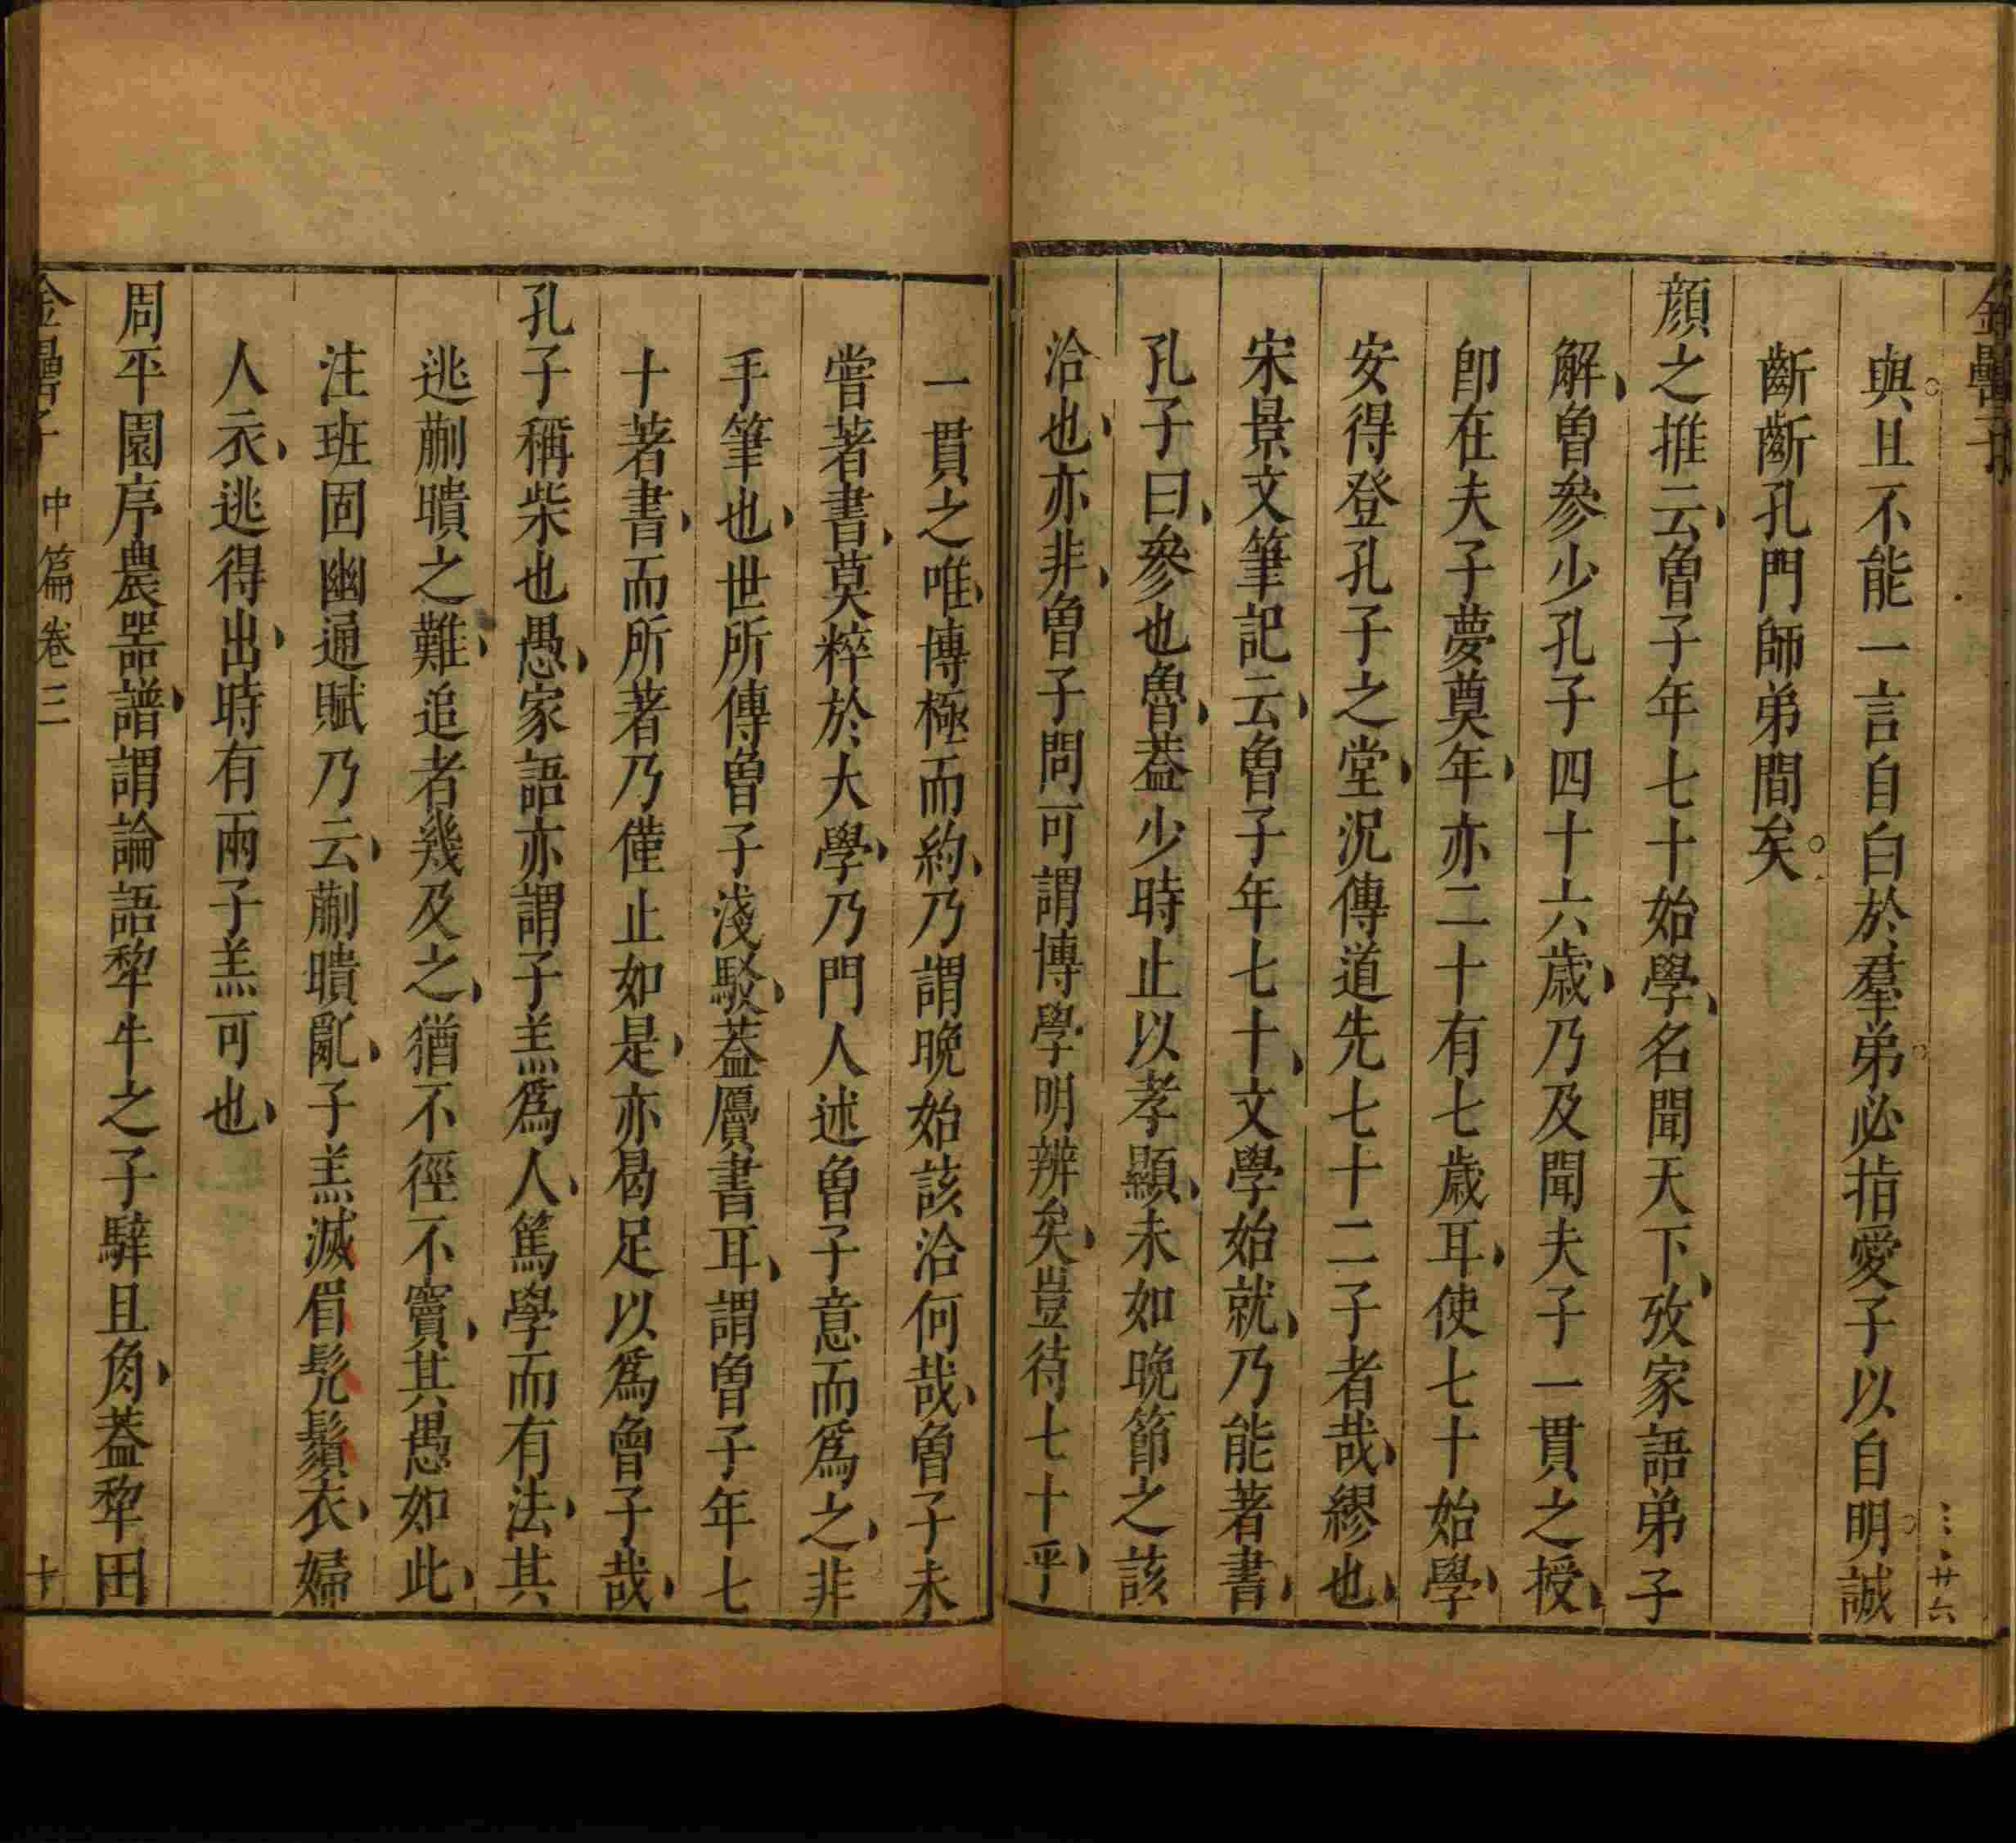 金罍子
三百廿六
與且不能一言自白於羣弟必指愛子以自明誠
斷斷孔門師弟間矣
顏之推云曾子年七十始學名聞天下攷家語弟子
解曾參少孔子四十六歲乃及聞夫子一貫之授
卽在夫子夢奠年亦二十有七歲耳使七十始學
安得登孔子之堂況傳道先七十二子者哉繆也
宋景文筆記云曾子年七十文學始就乃能著書
孔子曰參也魯葢少時止以孝顯未如晚節之該
洽也亦非曾子問可謂博學明辨矣豈待七十乎
一貫之唯博極而約乃謂晚始該洽何哉曾子未
嘗著書莫粹於大學乃門人述曾子意而爲之非
手筆也世所傳曾子淺駁葢贗書耳謂曾子年七
十著書而所著乃僅止如是亦曷足以爲曾子哉
孔子稱柴也愚家語亦謂子羔爲人篤學而有法其
逃蒯聵之難追者幾及之猶不徑不竇其愚如此
注班固幽通賦乃云蒯聵亂子羔滅眉髡鬚衣婦
人衣逃得出時有兩子羔可也
周平園序農噐譜謂論語犂牛之子騂且角葢犂田
金罍子 中篇卷三 十